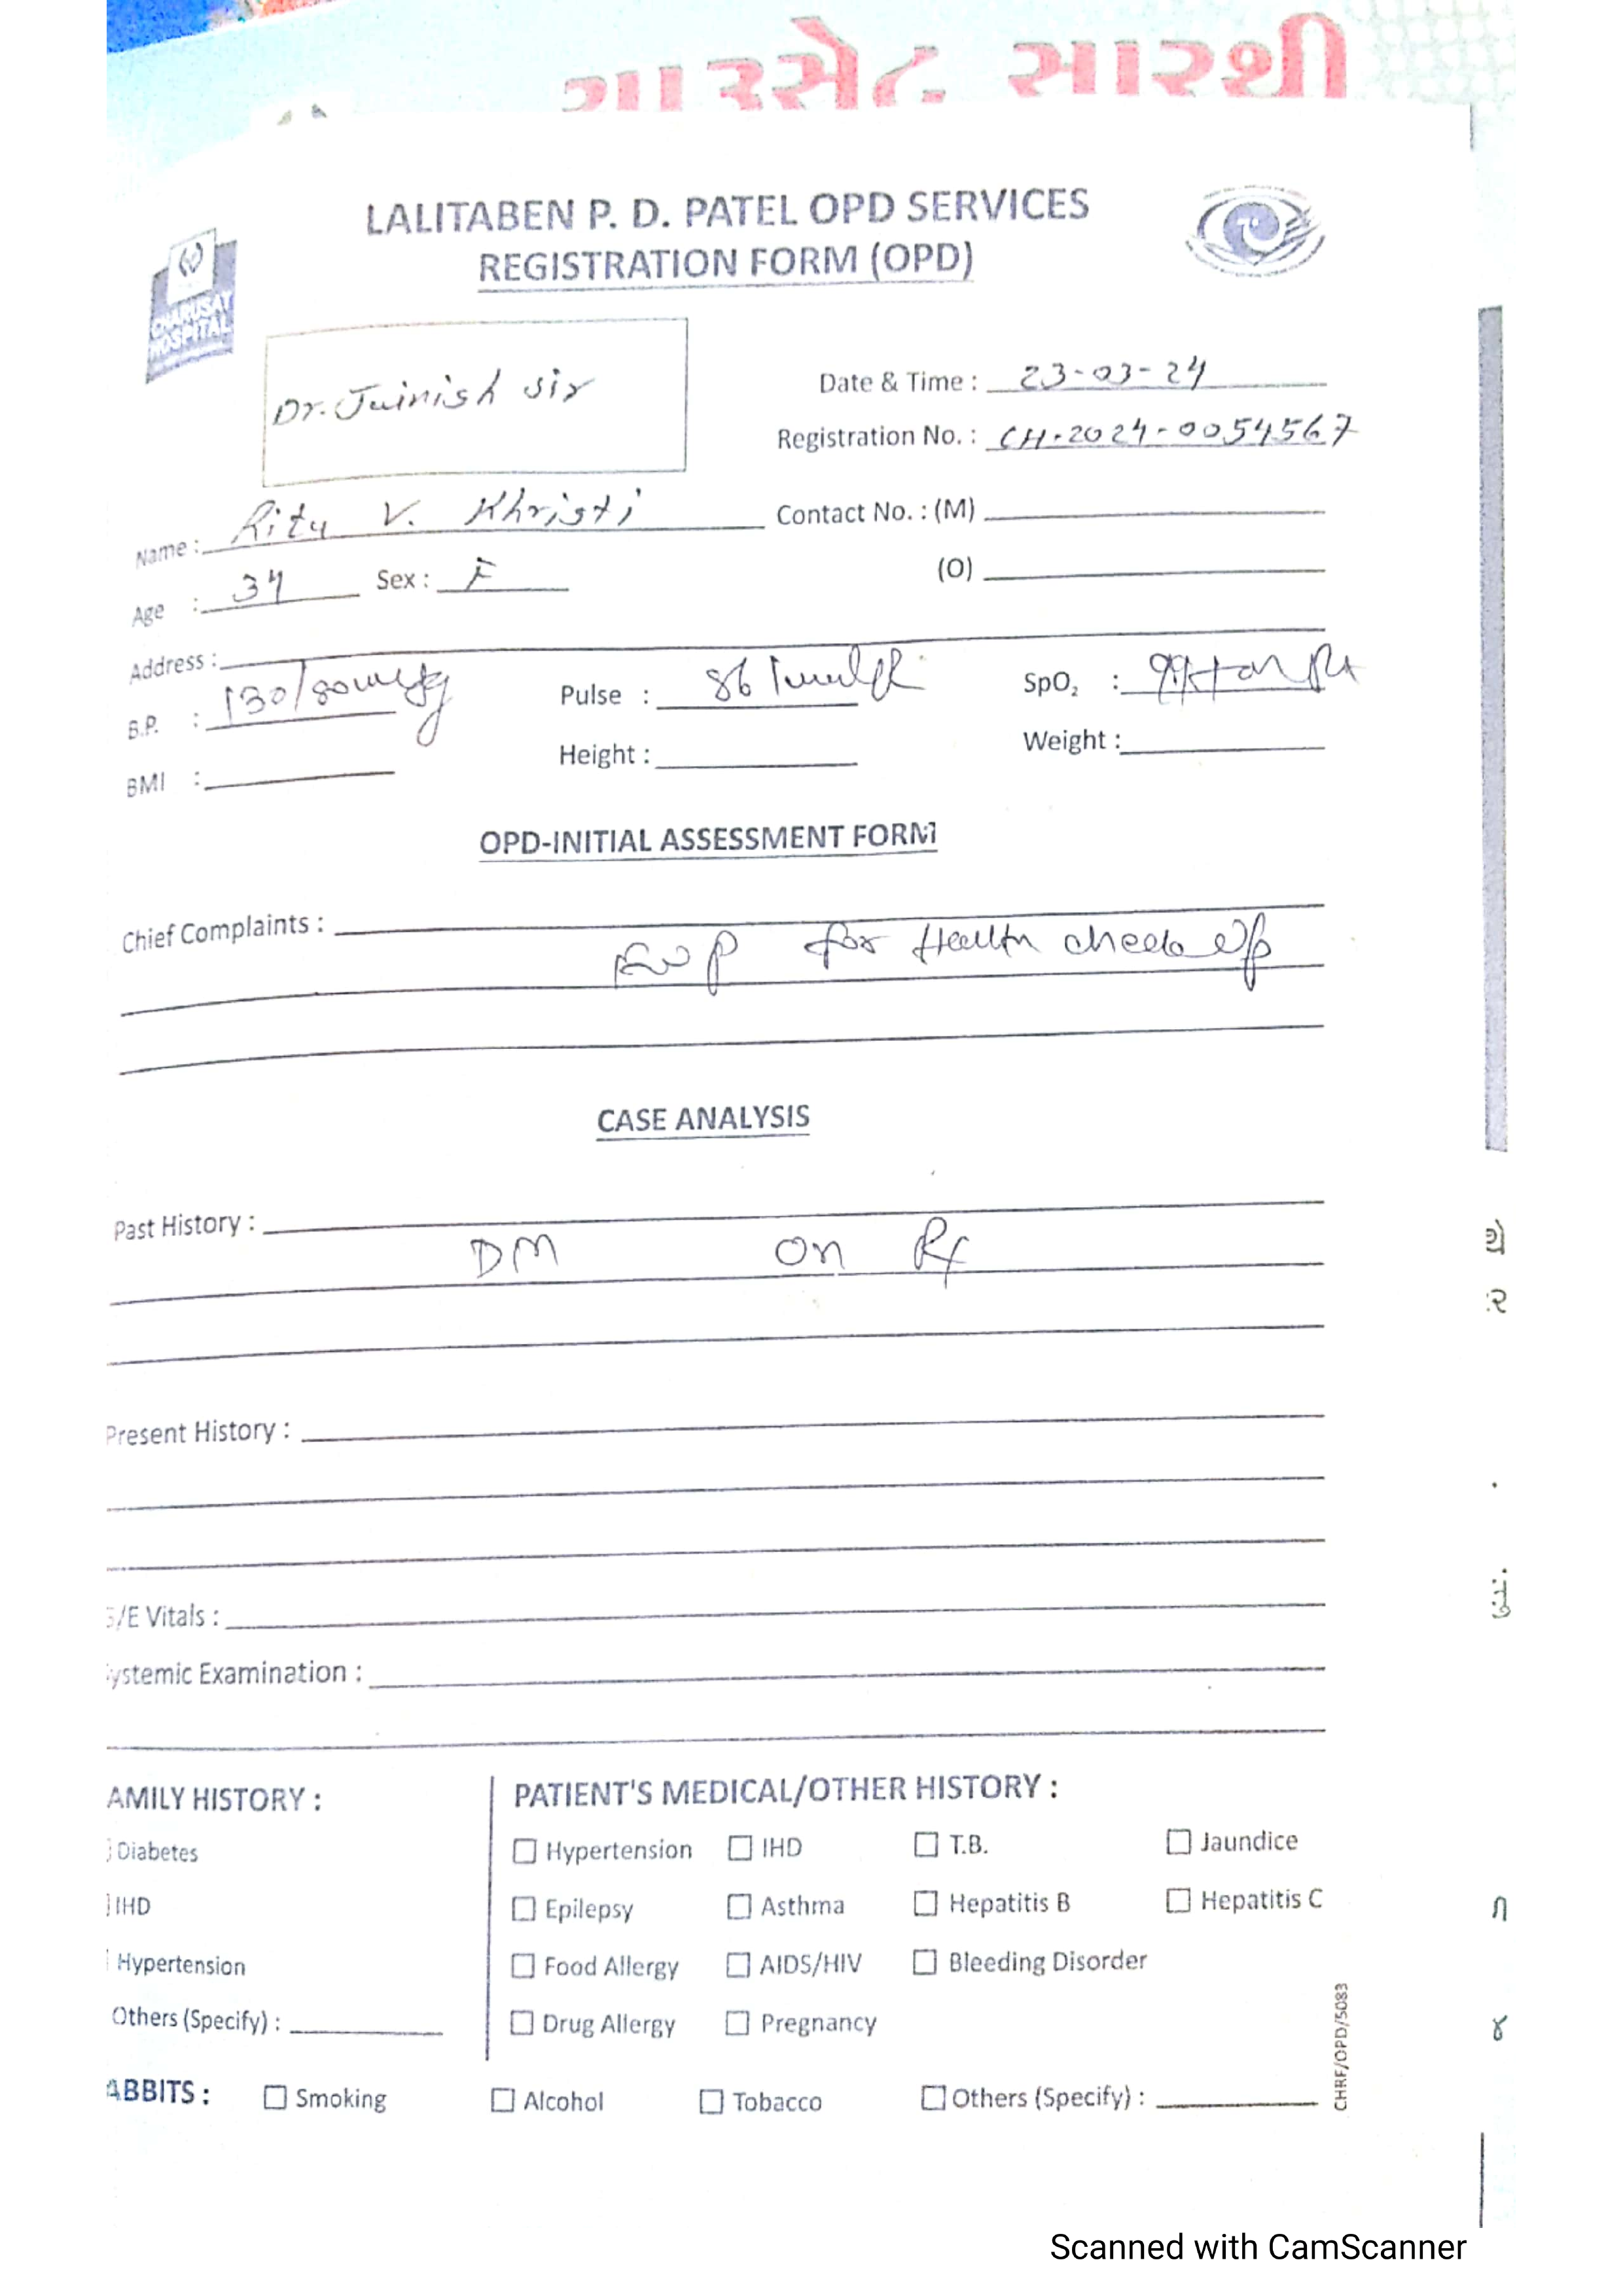 ગારસેટ સારથી
LALITABEN P. D. PATEL OPD SERVICES
REGISTRATION FORM (OPD)
CHARUSAT
HOSPITAL
Dr. Jainish sir
Date & Time : 23-03-24
Registration No. : CH-2024-0054567
Name : Ritu V. Khristi
Contact No. : (M)
Age : 34 Sex : F
(O)
Address :
B.P. : 130/80mmHg Pulse : 86/min SpO₂ : 99% on RA
BMI : Height : Weight :
OPD-INITIAL ASSESSMENT FORM
Chief Complaints :
for Health check up
CASE ANALYSIS
Past History :
DM on Rx
Present History :
/E Vitals :
ystemic Examination :
AMILY HISTORY :
Diabetes
IHD
Hypertension
Others (Specify) :
PATIENT'S MEDICAL/OTHER HISTORY :
Hypertension IHD T.B. Jaundice
Epilepsy Asthma Hepatitis B Hepatitis C
Food Allergy AIDS/HIV Bleeding Disorder
Drug Allergy Pregnancy
ABBITS : Smoking Alcohol Tobacco Others (Specify) :
CHRF/OPD/5083
Scanned with CamScanner